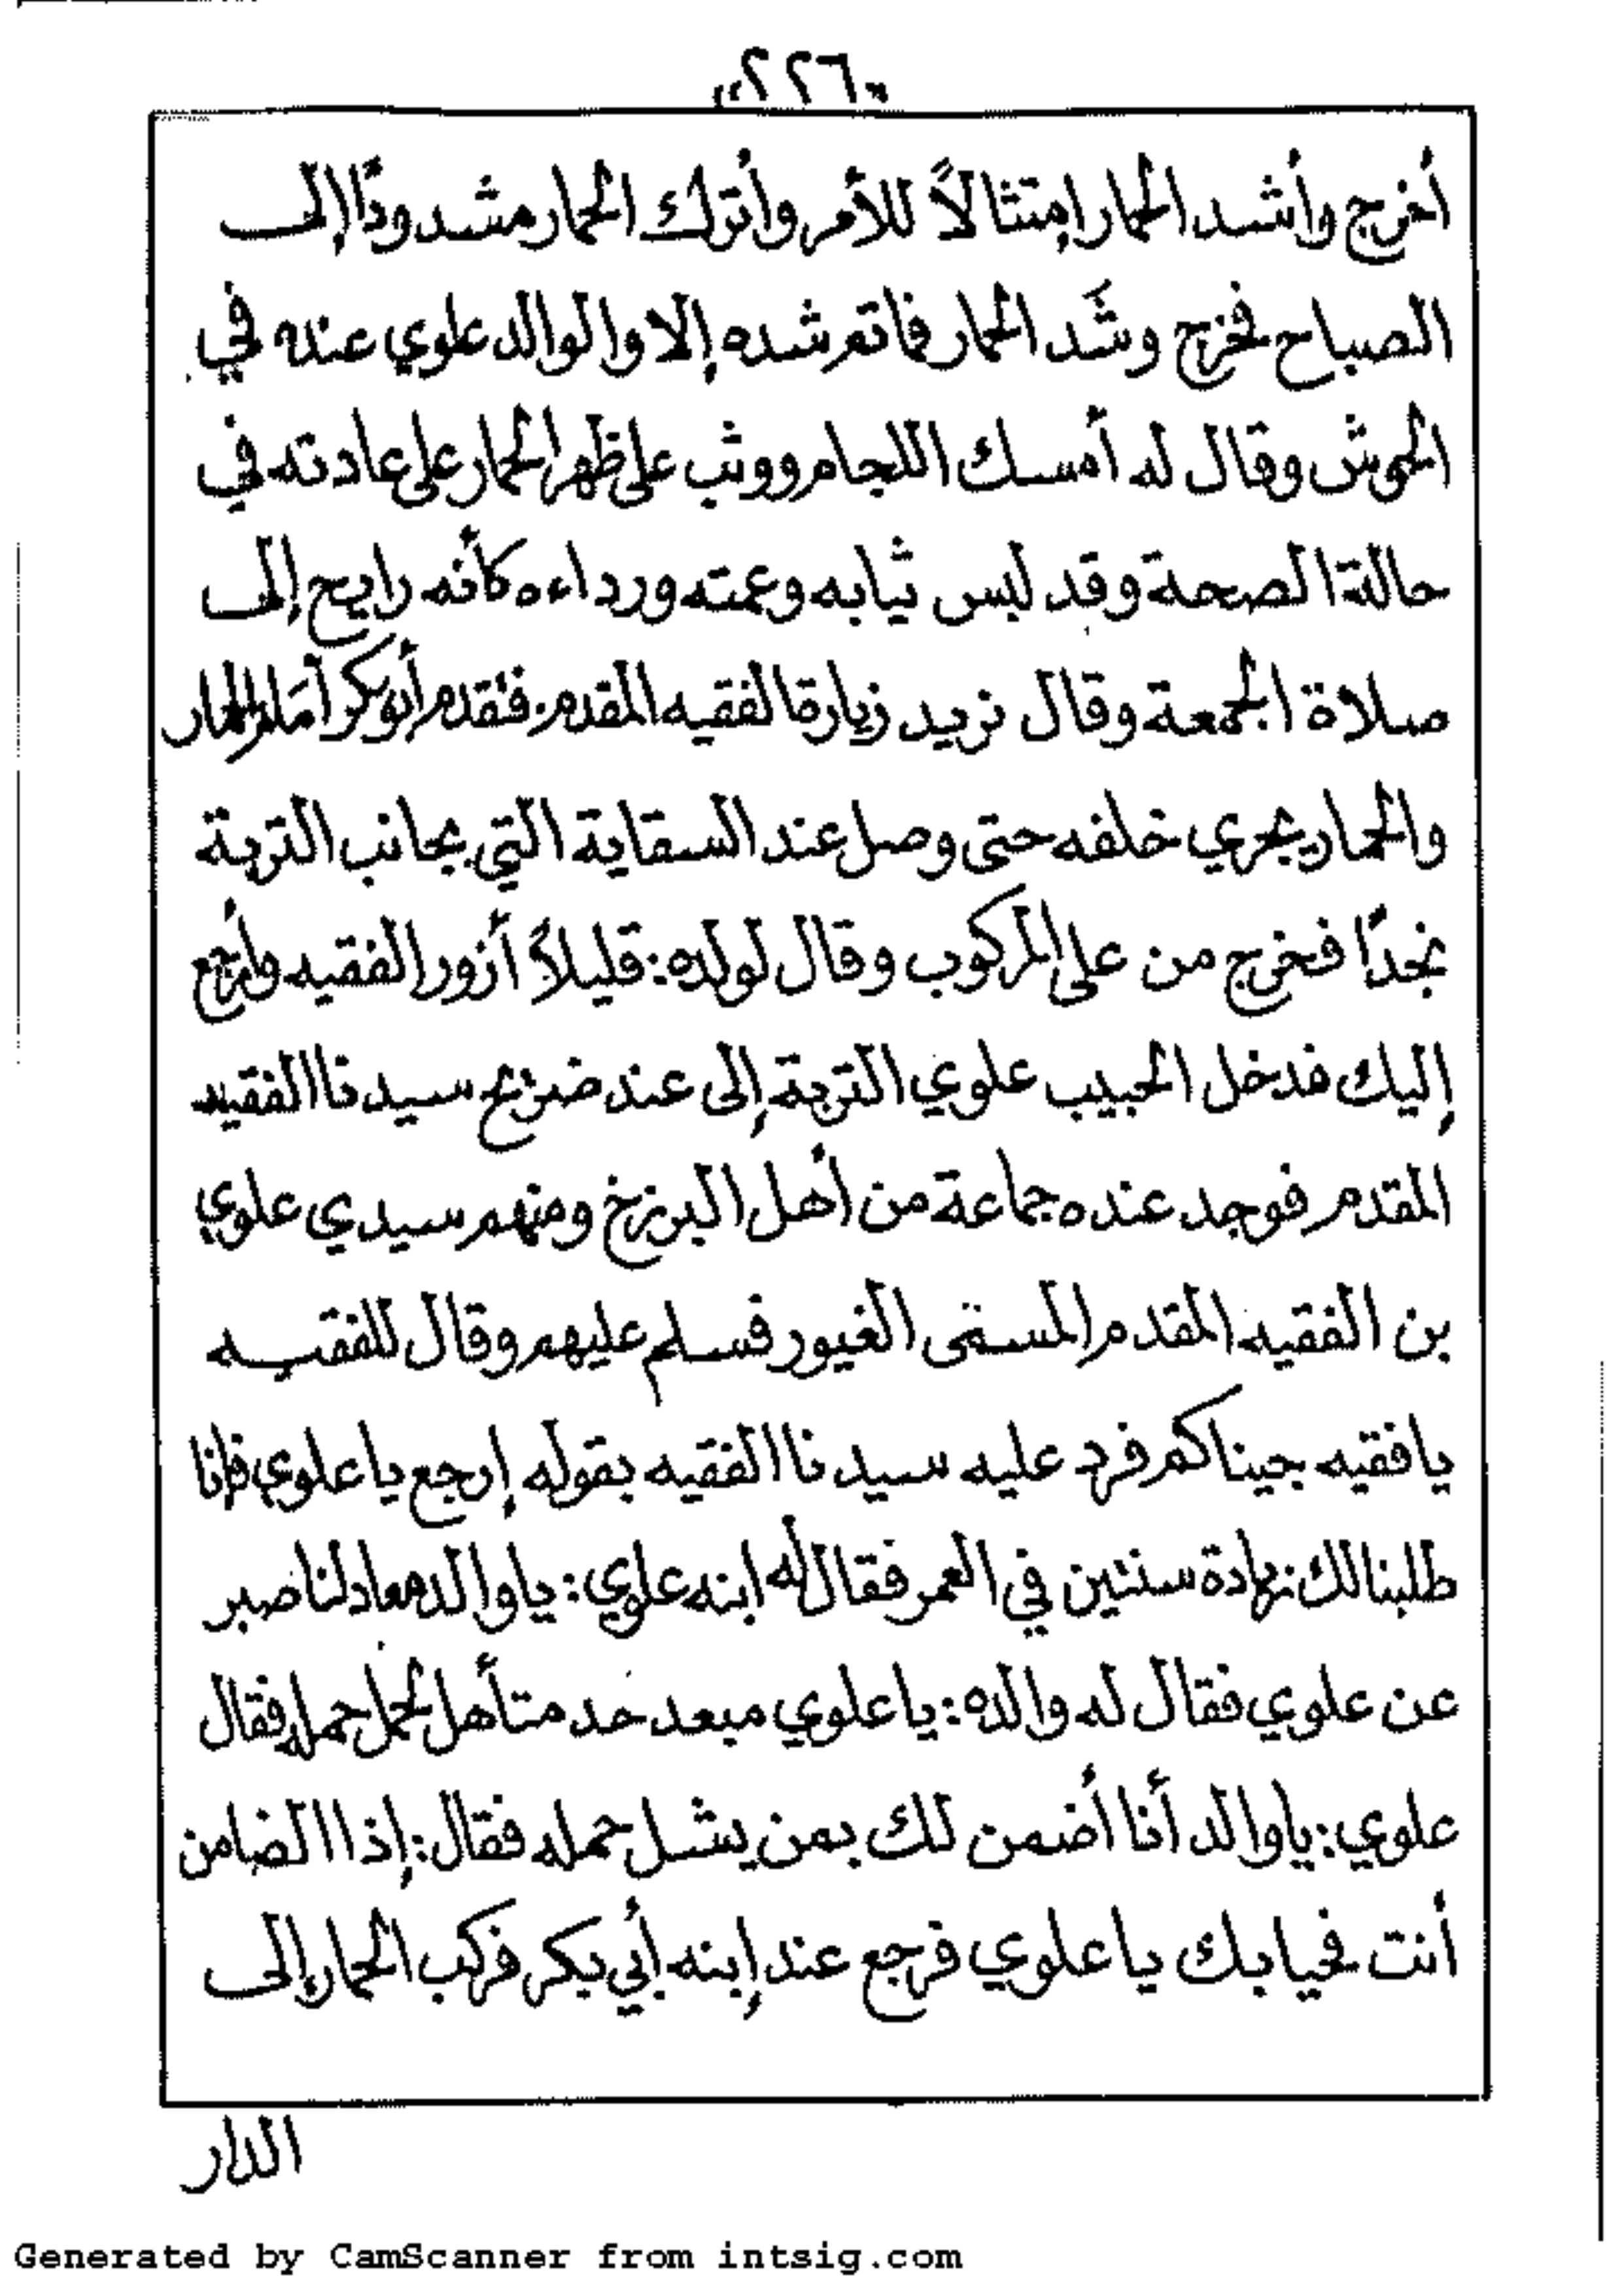 «٢٢٦»
أخرج وأشد الحمار إمتثالاً للأمر وأترك الحمار مشدودًا إلى
الصباح فخرج وشَد الحمار فما تم شده إلا والوالد علوي عنده في
الحوش وقال له أمسك اللجام ووثب على ظهر الحمار على عادته في
حالة الصحة وقد لبس ثيابه وعمته ورداءه كأنه رايح إلى
صلاة الجمعة وقال نريد زيارة الفقيه المقدم. فتقدم أبو بكر أمام الحمار
والحمار يجري خلفه حتى وصل عند السقاية التي بجانب التربة
نجدًا فخرج من على المركوب وقال لولده: قليلاً أزور الفقيه وأرجع
إليك فدخل الحبيب علوي التربة إلى عند ضريح سيدنا الفقيه
المقدم فوجد عنده جماعة من أهل البرزخ ومنهم سيدي علوي
بن الفقيه المقدم المسمى الغيور فسلم عليهم وقال للفقيه
يا فقيه جيناكم فرد عليه سيدنا الفقيه بقوله إرجع يا علوي فإنا
طلبنا لك زيادة سنتين في العمر فقال له ابنه علوي: يا والد معاد لنا صبر
عن علوي فقال له والده: يا علوي مبعد حد متأهل لحمل حمله فقال
علوي: يا والد أنا أضمن لك بمن يشل حمله فقال: إذا الضامن
أنت فحيا بك يا علوي فرجع عند إبنه أبي بكر فركب الحمار إلى
الدار
Generated by CamScanner from intsig.com